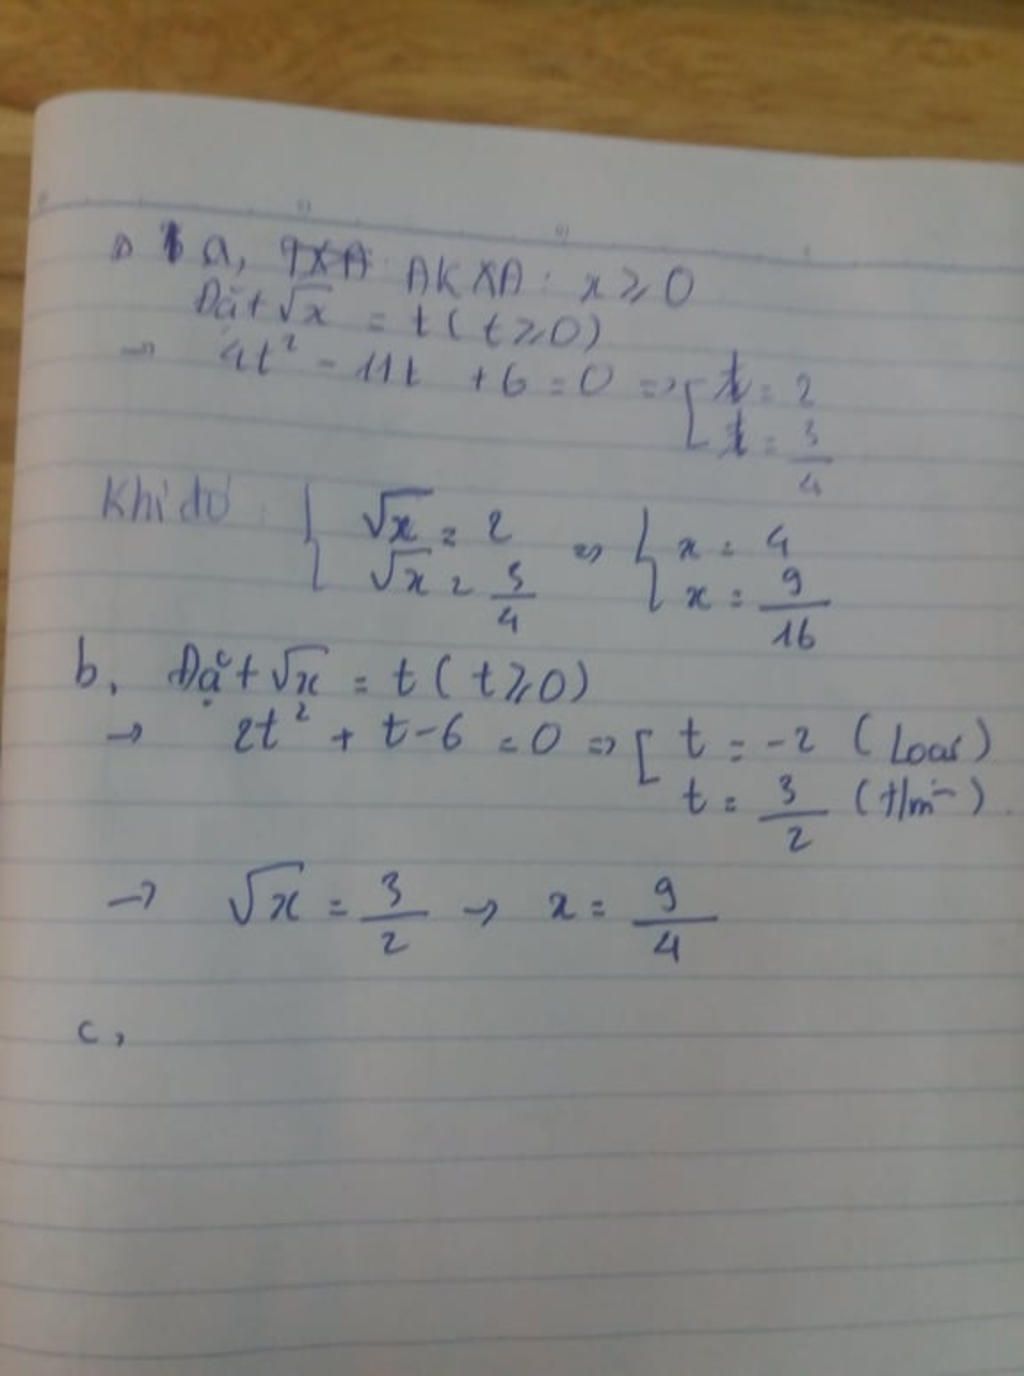 a, ĐKXĐ: x ≥ 0
Đặt √x = t ( t ≥ 0)
→ 4t² - 11t + 6 = 0 => [ t = 2
t = 3/4
Khi đó: { √x = 2 => { x = 4
√x = 3/4 x = 9/16
b, Đặt √x = t ( t ≥ 0)
→ 2t² + t - 6 = 0 => [ t = -2 ( Loại )
t = 3/2 ( t/m )
→ √x = 3/2 → x = 9/4
c,